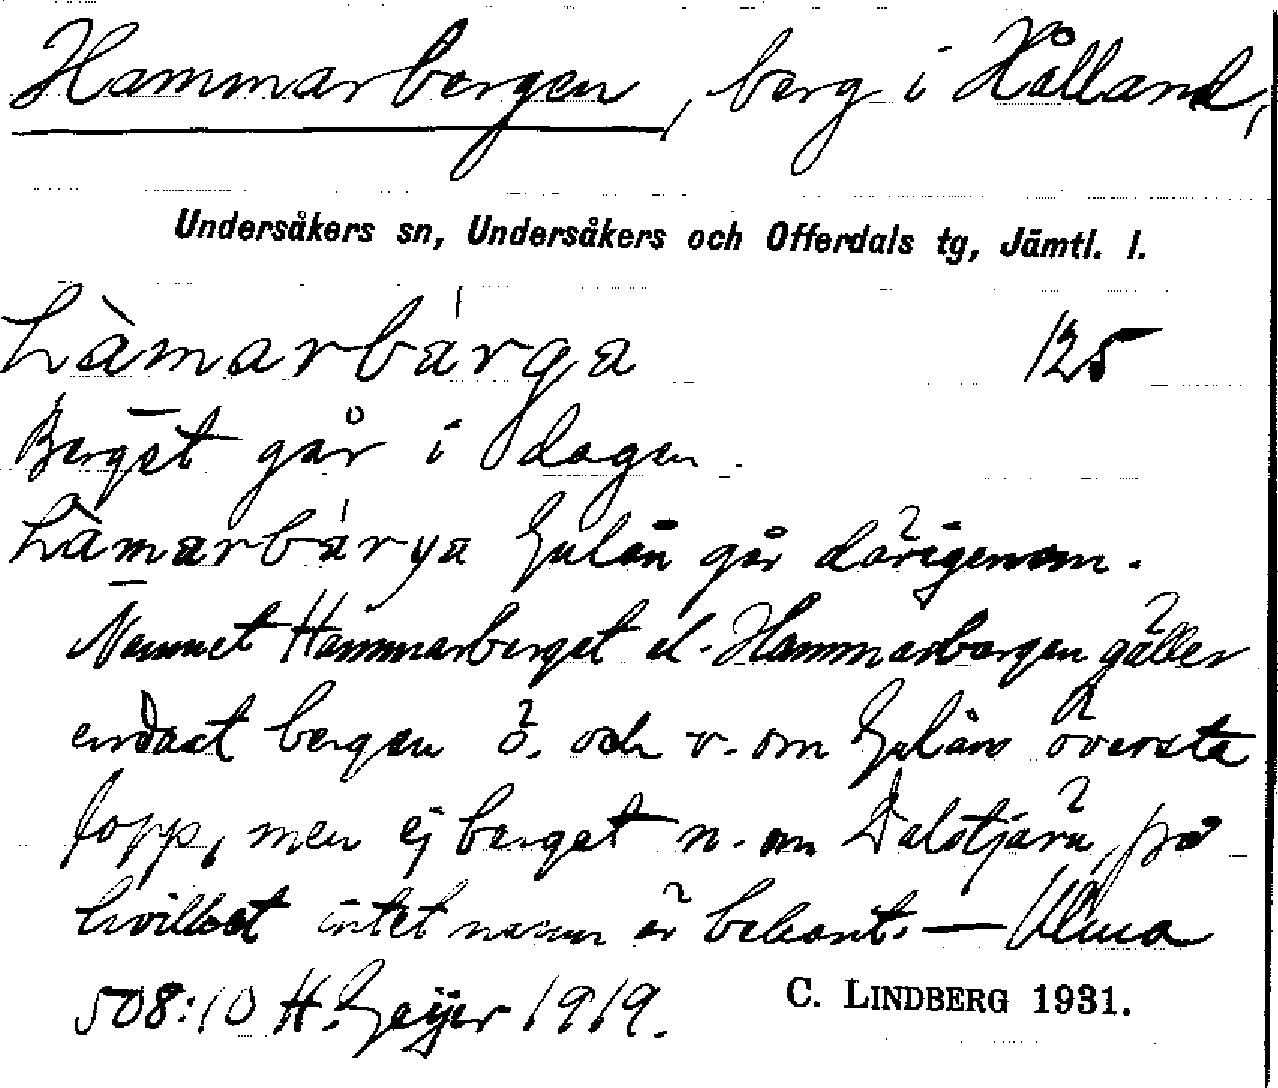 Hammarbergen, berg i Hålland,
Undersåkers sn, Undersåkers och Offerdals tg, Jämtl. l.
hàmarbárga 125
Berget går i dagen.
hàmarbárya Gulån går därigenom.
Namnet Hammarberget el. Hammarbergen gäller
endast bergen ö. och v. om Gulåns översta
lopp, men ej berget n. om Dalstjärn, på
hvilket intet namn är bekant. —
508:10 H. Geijer 1919. C. LINDBERG 1931.